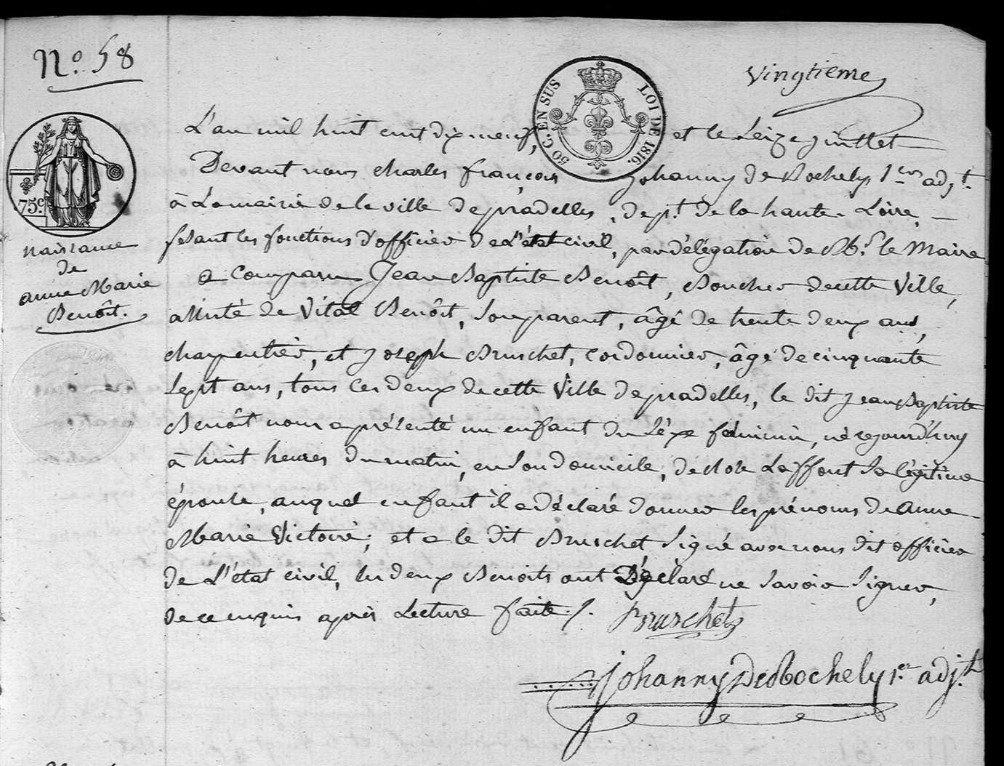 N.o 58
Vingtieme
50 C. EN SUS
LOI DE 1816.
75c
naissance
de
anne Marie
Benoît.
L'an mil huit cent dix neuf, et le Seize juillet
Devant nous charles françois Johanny de Rochely 1.er adj.t
à La mairie de la ville de pradelles, dep.t de la haute-Loire,
fesant les fonctions d'officier de L'état civil, par délégation de M.r le Maire
a Comparu Jean Baptiste Benoît, Boucher de cette Ville,
assisté de Vital Benoît, Son parent, âgé de trente deux ans,
charpentier, et Joseph Bruschet, cordonnier, âgé de cinquante
Sept ans, tous les deux de cette Ville de pradelles, le dit Jean Baptiste
Benoît nous a présenté un enfant du Sèxe féminin, né cejourd'huy
à huit heures du matin, en Son domicile, de Rose Laffont Sa légitime
épouse, auquel enfant il a déclaré donner les prénoms de anne
Marie Victoire; et a le dit Bruschet, Signé avec nous dit officier
de L'état civil, les deux Benoits ont Déclaré ne Savoir Signer,
de ce enquis après Lecture faite ./.
Bruschet
Johanny DeRochely 1.er adj.t